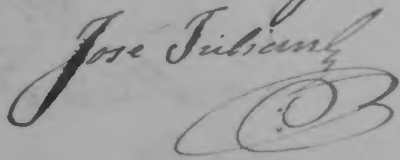 José Juliani